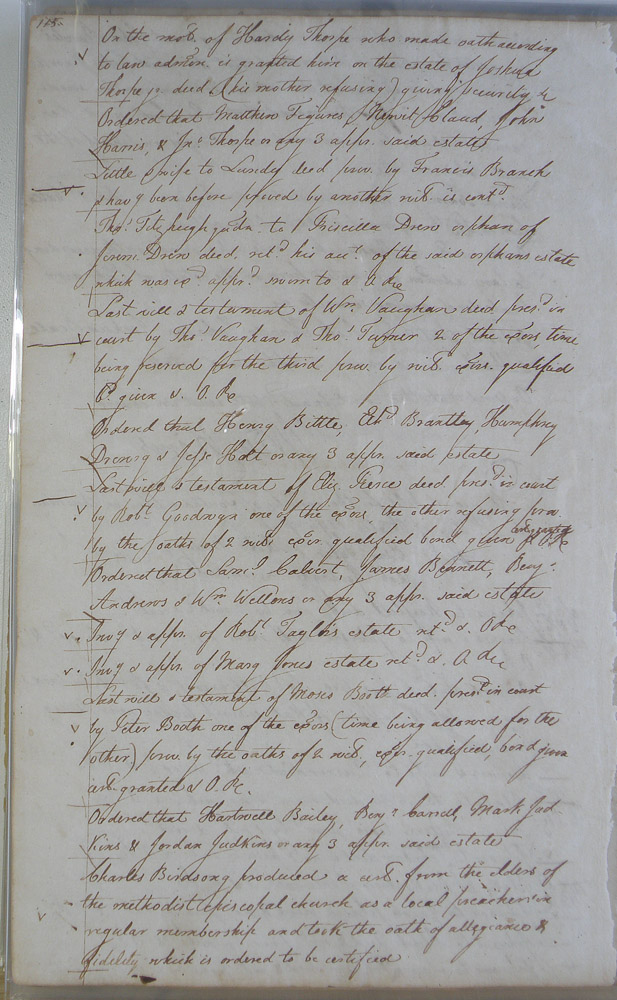 On the mo͠. of Hardy Thorpe who made oath according
to law admōn. is granted him on the estate of Joshua
Thorpe decd. (his mother refusing) giving security &
Ordered that Matthew Figures, Newit Claud, John
Harris, & Jnº Thorpe or any 3 appr. said estate
Little Swife to Lundy deed prov. by Francis Branch
& havg been before proved by another wit. is contd
Thos. Fitzhugh gudn. to Priscilla Drew orphan of
Jerem. Drew decd. retd his acct. of the said orphans estate
which was exd appd. sworn to & O Re
Last will & testament of Wm. Vaughan decd presd in
court by Thos. Vaughan & Thos. Turner 2 of the exors, time
being reserved for the third prov. by wit. exors. qualified
bd given &. O. Re
Ordered that Henry Bittle, Ethd Brantley, Humphrey
Drewry & Jesse Holt or any 3 appr. said estate
Last will & testament of Eliz. Pierce decd presd in court
by Robt Goodwyn one of the exors, the other refusing prov.
by the oaths of 2 wit. exor qualified bond given cert. granted & O Re
Ordered that Saml Calvert, James Bennett, Benj.
Andrews & Wm. Wellons or any 3 appr. said estate
Invy & appr. of Robt Taylors estate retd &. O Re
Invy & appr. of Marg Jones estate retd &. O Re
Last will & testament of Moses Booth decd. presd in court
by Peter Booth one of the exors (time being allowed for the
other) prov. by the oaths of 2 wit, exor. qualified, bond given
cert. granted & O. Re.
Ordered that Hartwell Bailey, Benj. Carrell, Mark Jud-
kins & Jordan Judkins or any 3 appr. said estate
Charles Birdsong produced a cert. from the elders of
the methodist episcopal church as a local preacher in
regular membership and took the oath of allegiance &
fidelity which is ordered to be certified